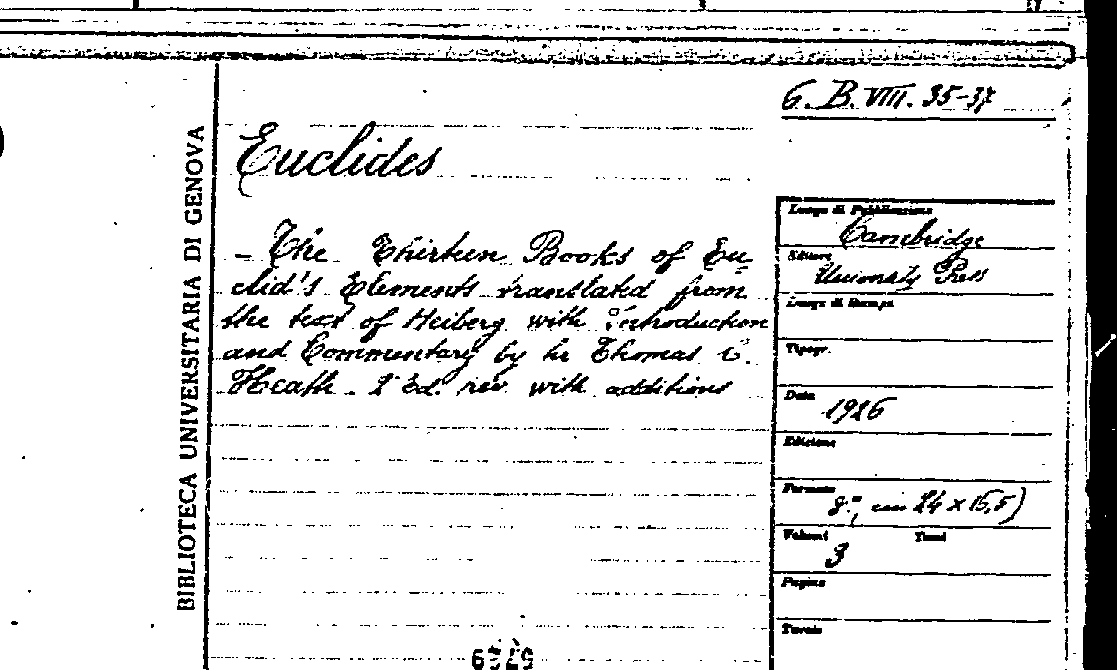 G. B. VIII. 35-37
BIBLIOTECA UNIVERSITARIA DI GENOVA
Euclides
- The Thirteen Books of Eu=
clid's Elements translated from
the text of Heiberg with introduction
and Commentary by Thomas
Heath. 2 Ed. rev. with additions
Luogo di Pubblicazione
Cambridge
Editore
University Press
Luogo di Stampa
Tipogr.
Data
1926
Edizione
Formato
8°, 24 x 15,5)
Volumi Tomi
3
Pagine
Tavole